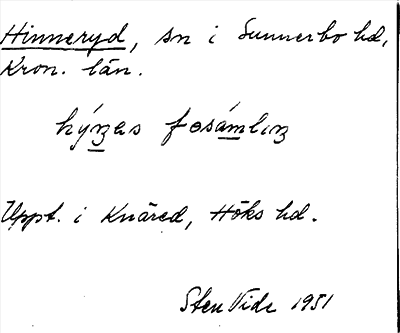 Hinneryd, sn i Sunnerbo hd,
Kron. län.
hýn̲es fɷsám̲lıŋ
Uppt. i Knäred, Höks hd.
Sten Vide 1951